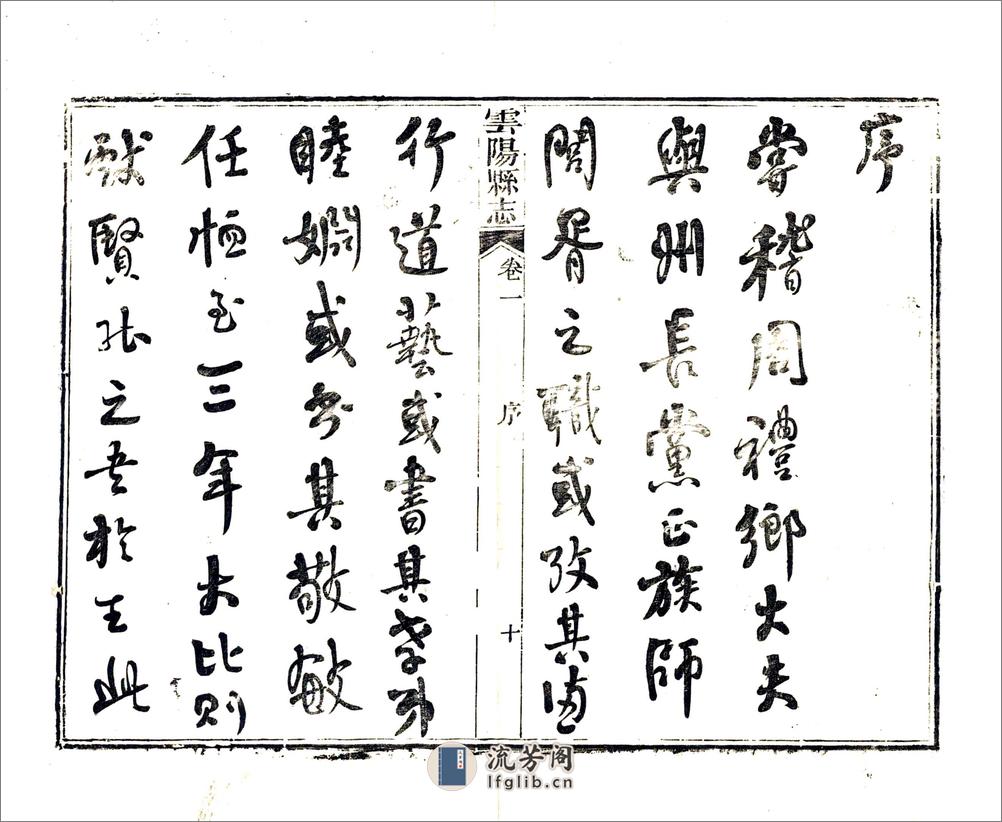 序
嘗稽周禮鄉大夫
與州長黨正族師
閭胥之職或攷其德
雲陽縣志
卷一
序
十
行道藝或書其孝弟
睦婣或書其敬敏
任恤至三年大比則
獻賢能之書於王此
流芳阁
lfglib.cn